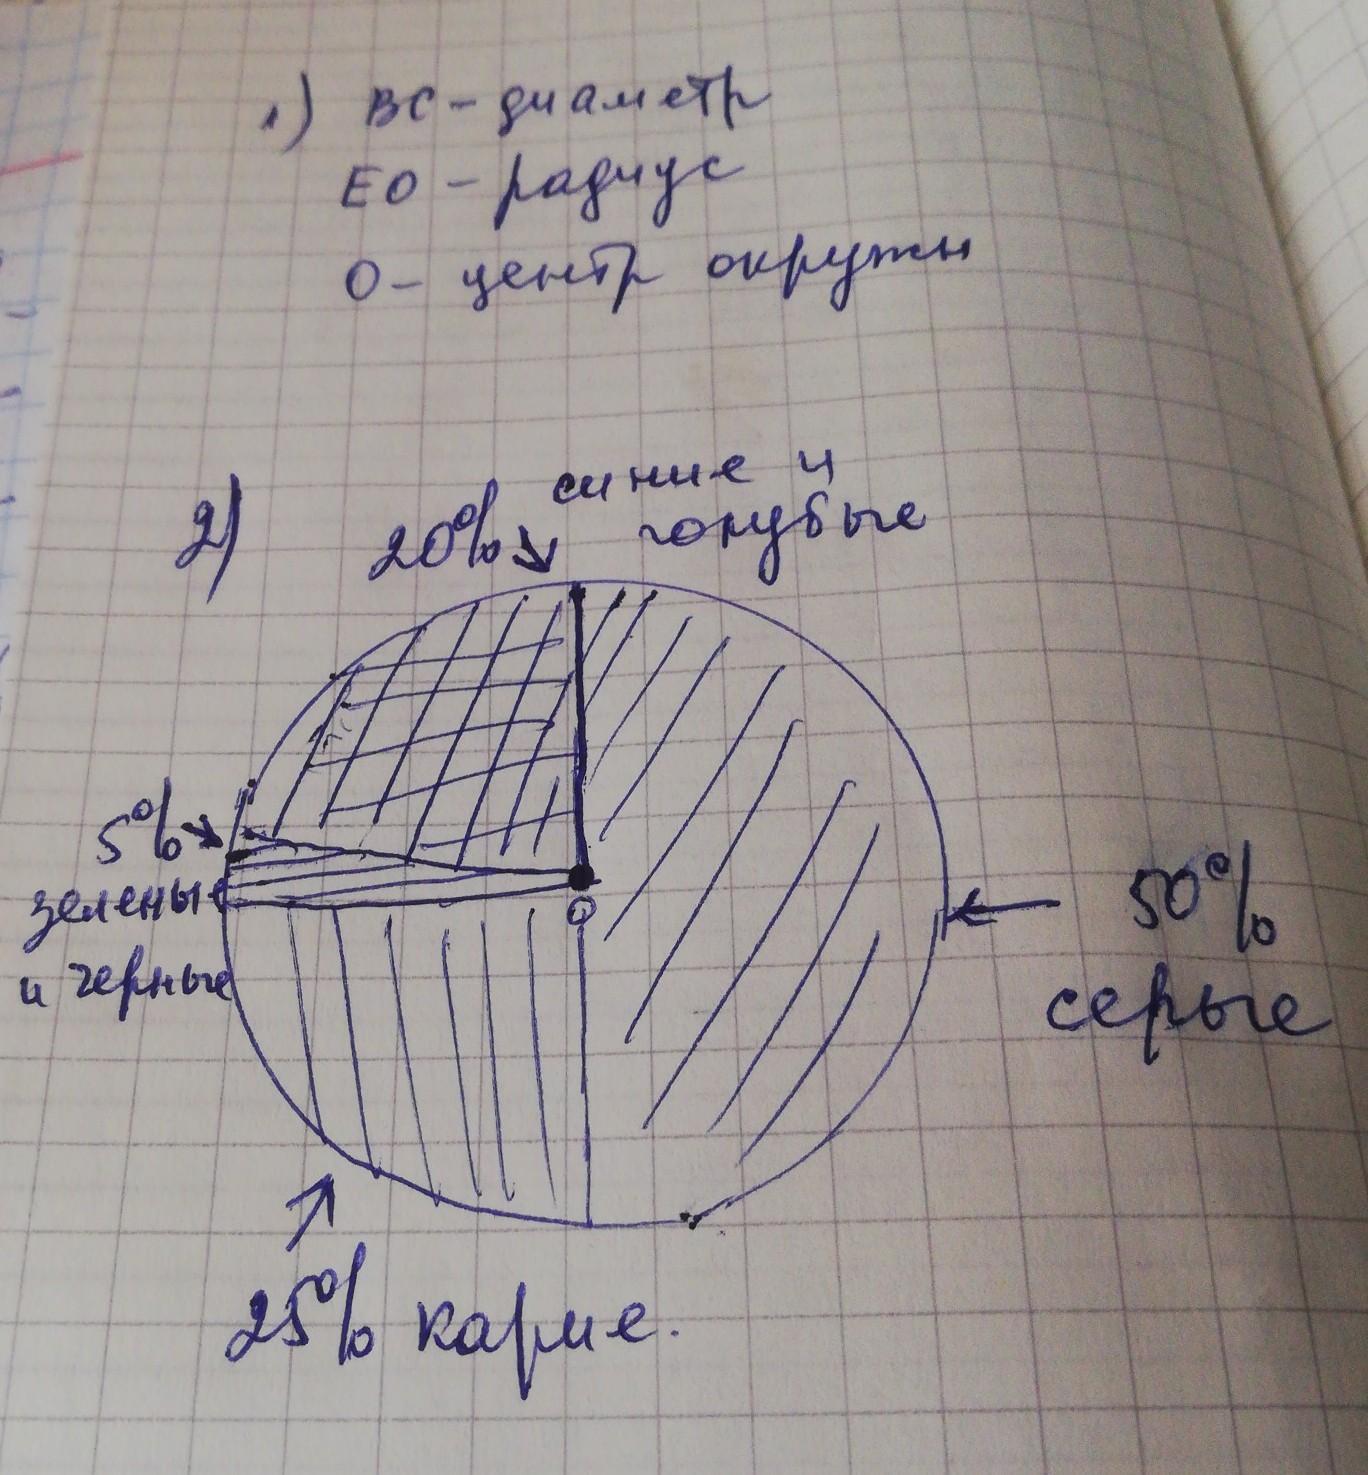 1) BC – диаметр
EO – радиус
O – центр окружн
2)
20% синие и
голубые
5%
зеленые
и черные
O
50%
серые
25% карие.